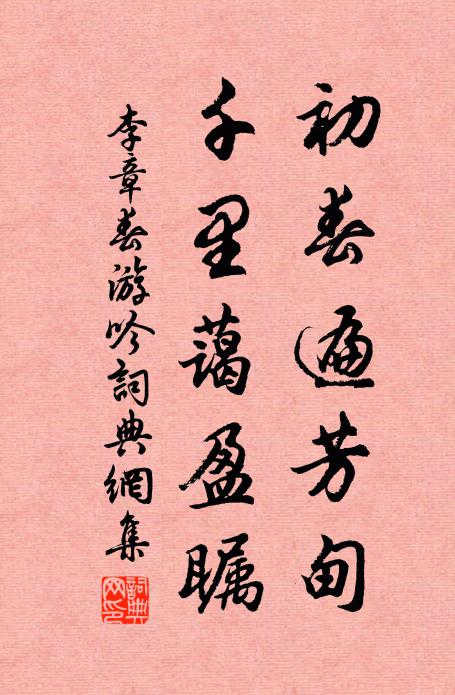 初春遍芳甸
千里蔼盈瞩
李章春游吟詞典網集
詞典網印